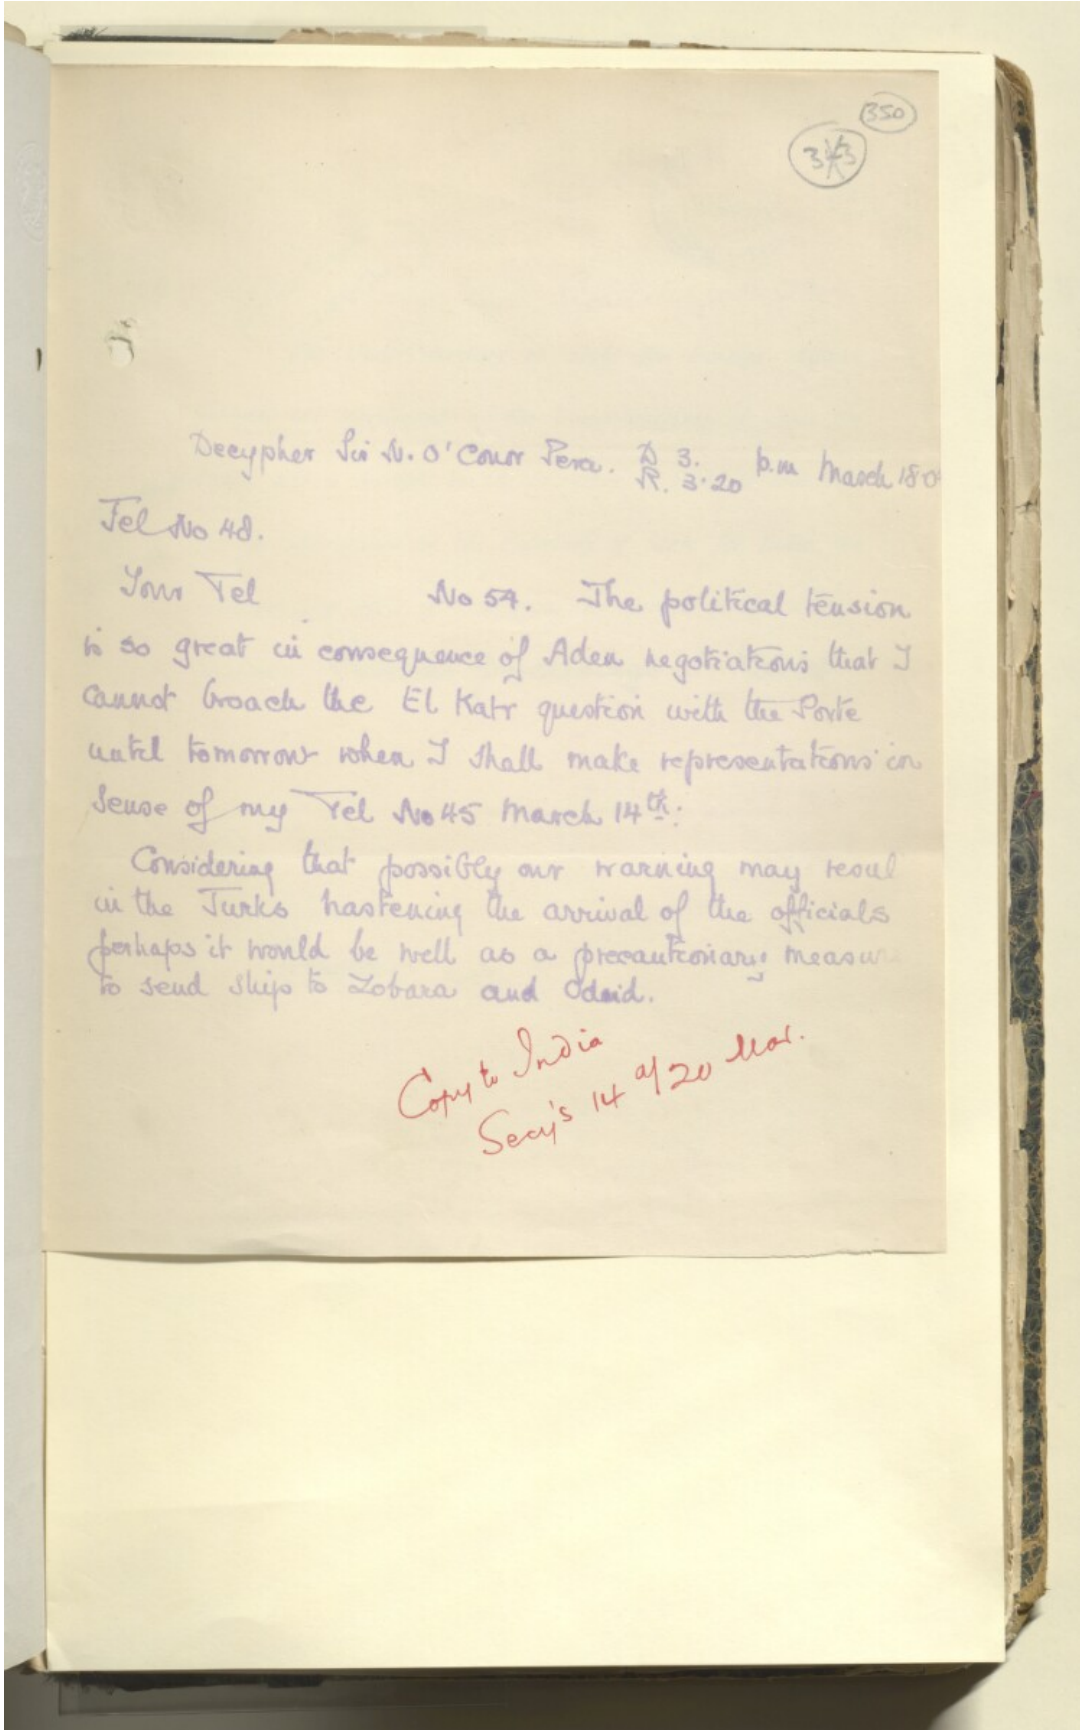 350
343
Decypher Sir N. O'Conor Pera. D 3. p.m March 18.0
R. 3.20
Tel No 48.
Your Tel No 54. The political tension
is so great in consequence of Aden negotiations that I
cannot broach the El Katr question with the Porte
until tomorrow when I shall make representations in
sense of my Tel No 45 March 14th.
Considering that possibly our warning may resul
in the Turks hastening the arrival of the officials
perhaps it would be well as a precautionary measure
to send ships to Zobara and Odaid.
Copy to India
Secy's 14 of 20 Mar.